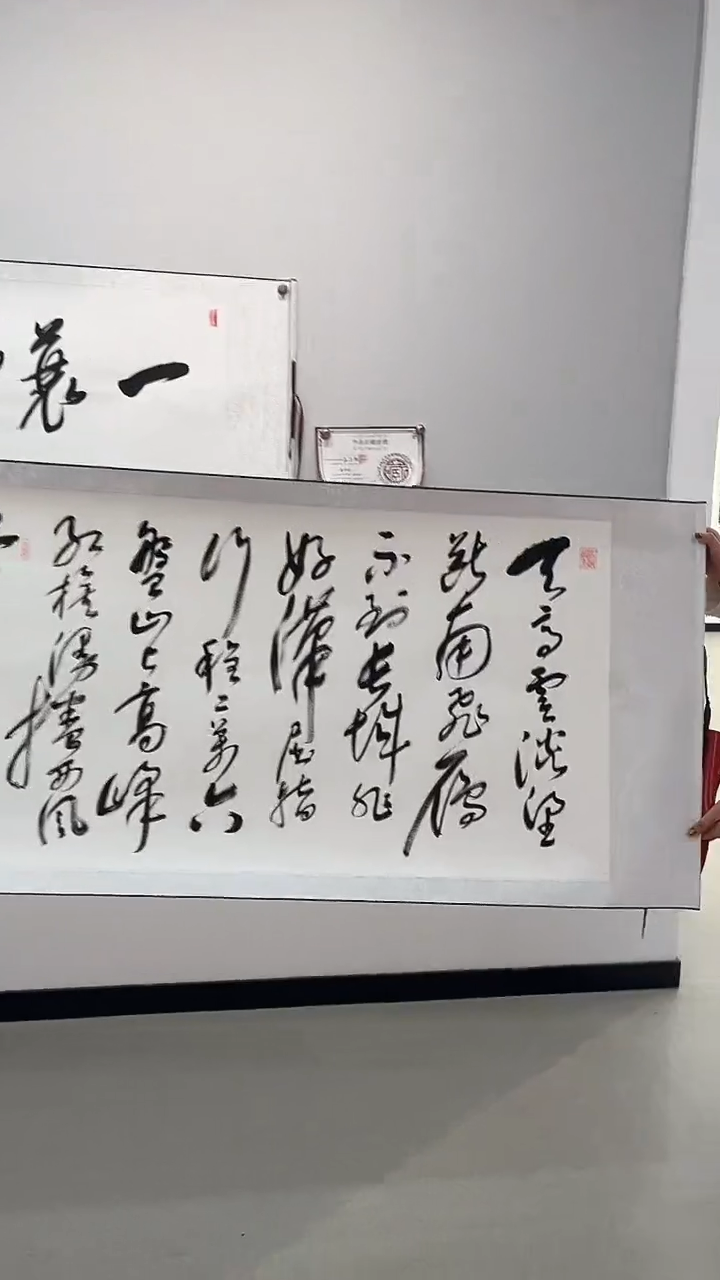 一蓑
天高雲淡望
斷南飛雁
不到長城非
好漢屈指
行程二萬六
盤山上高峰
紅旗漫捲西風